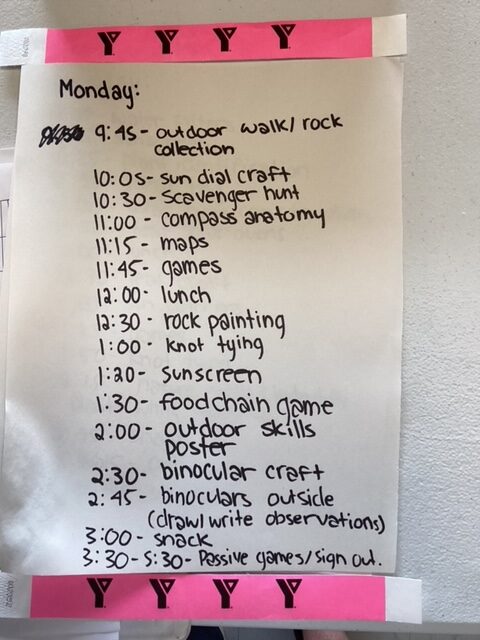 Y Y Y Y
Monday:
9:45- outdoor walk/rock
collection
10:05- sun dial craft
10:30- Scavenger hunt
11:00 - compass anatomy
11:15 - maps
11:45- games
12:00- lunch
12:30 - rock painting
1:00 - knot tying
1:20 - sunscreen
1:30- foodchain game
2:00- outdoor skills
poster
2:30- binocular craft
2:45- binoculars outside
(draw/write observations)
3:00- snack
3:30-5:30- Passive games/sign out.
Y Y Y Y